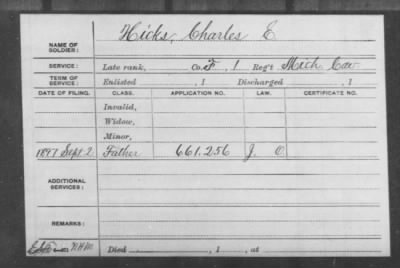 Hicks, Charles E
NAME OF SOLDIER:
SERVICE: Late rank, Co. F, 1 Reg't Mich Cav
TERM OF SERVICE: Enlisted , 1 Discharged , 1
DATE OF FILING. CLASS. APPLICATION NO. LAW. CERTIFICATE NO.
Invalid,
Widow,
Minor,
1897 Sept 2 Father 661,256 J. O.
ADDITIONAL SERVICES:
REMARKS:
Died , 1 , at